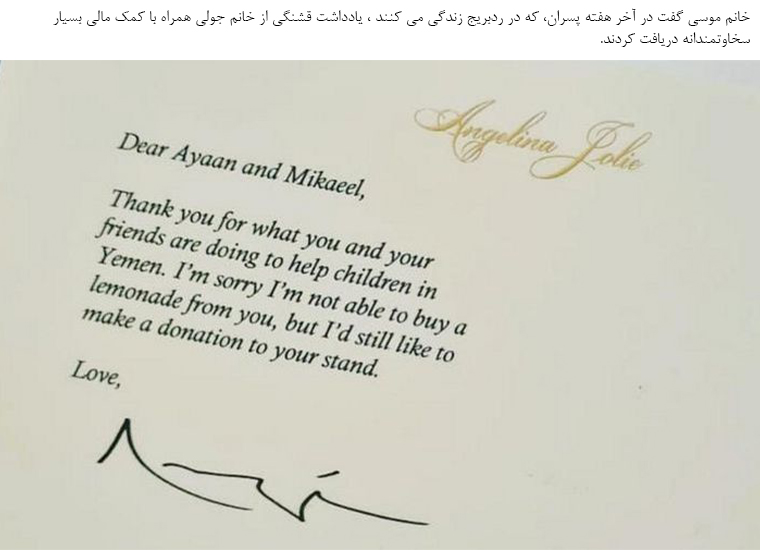 خانم موسی گفت در آخر هفته پسران، که در ردبریج زندگی می کنند ، یادداشت قشنگی از خانم جولی همراه با کمک مالی بسیار
سخاوتمندانه دریافت کردند.
Angelina Jolie
Dear Ayaan and Mikaeel,
Thank you for what you and your
friends are doing to help children in
Yemen. I'm sorry I'm not able to buy a
lemonade from you, but I'd still like to
make a donation to your stand.
Love,